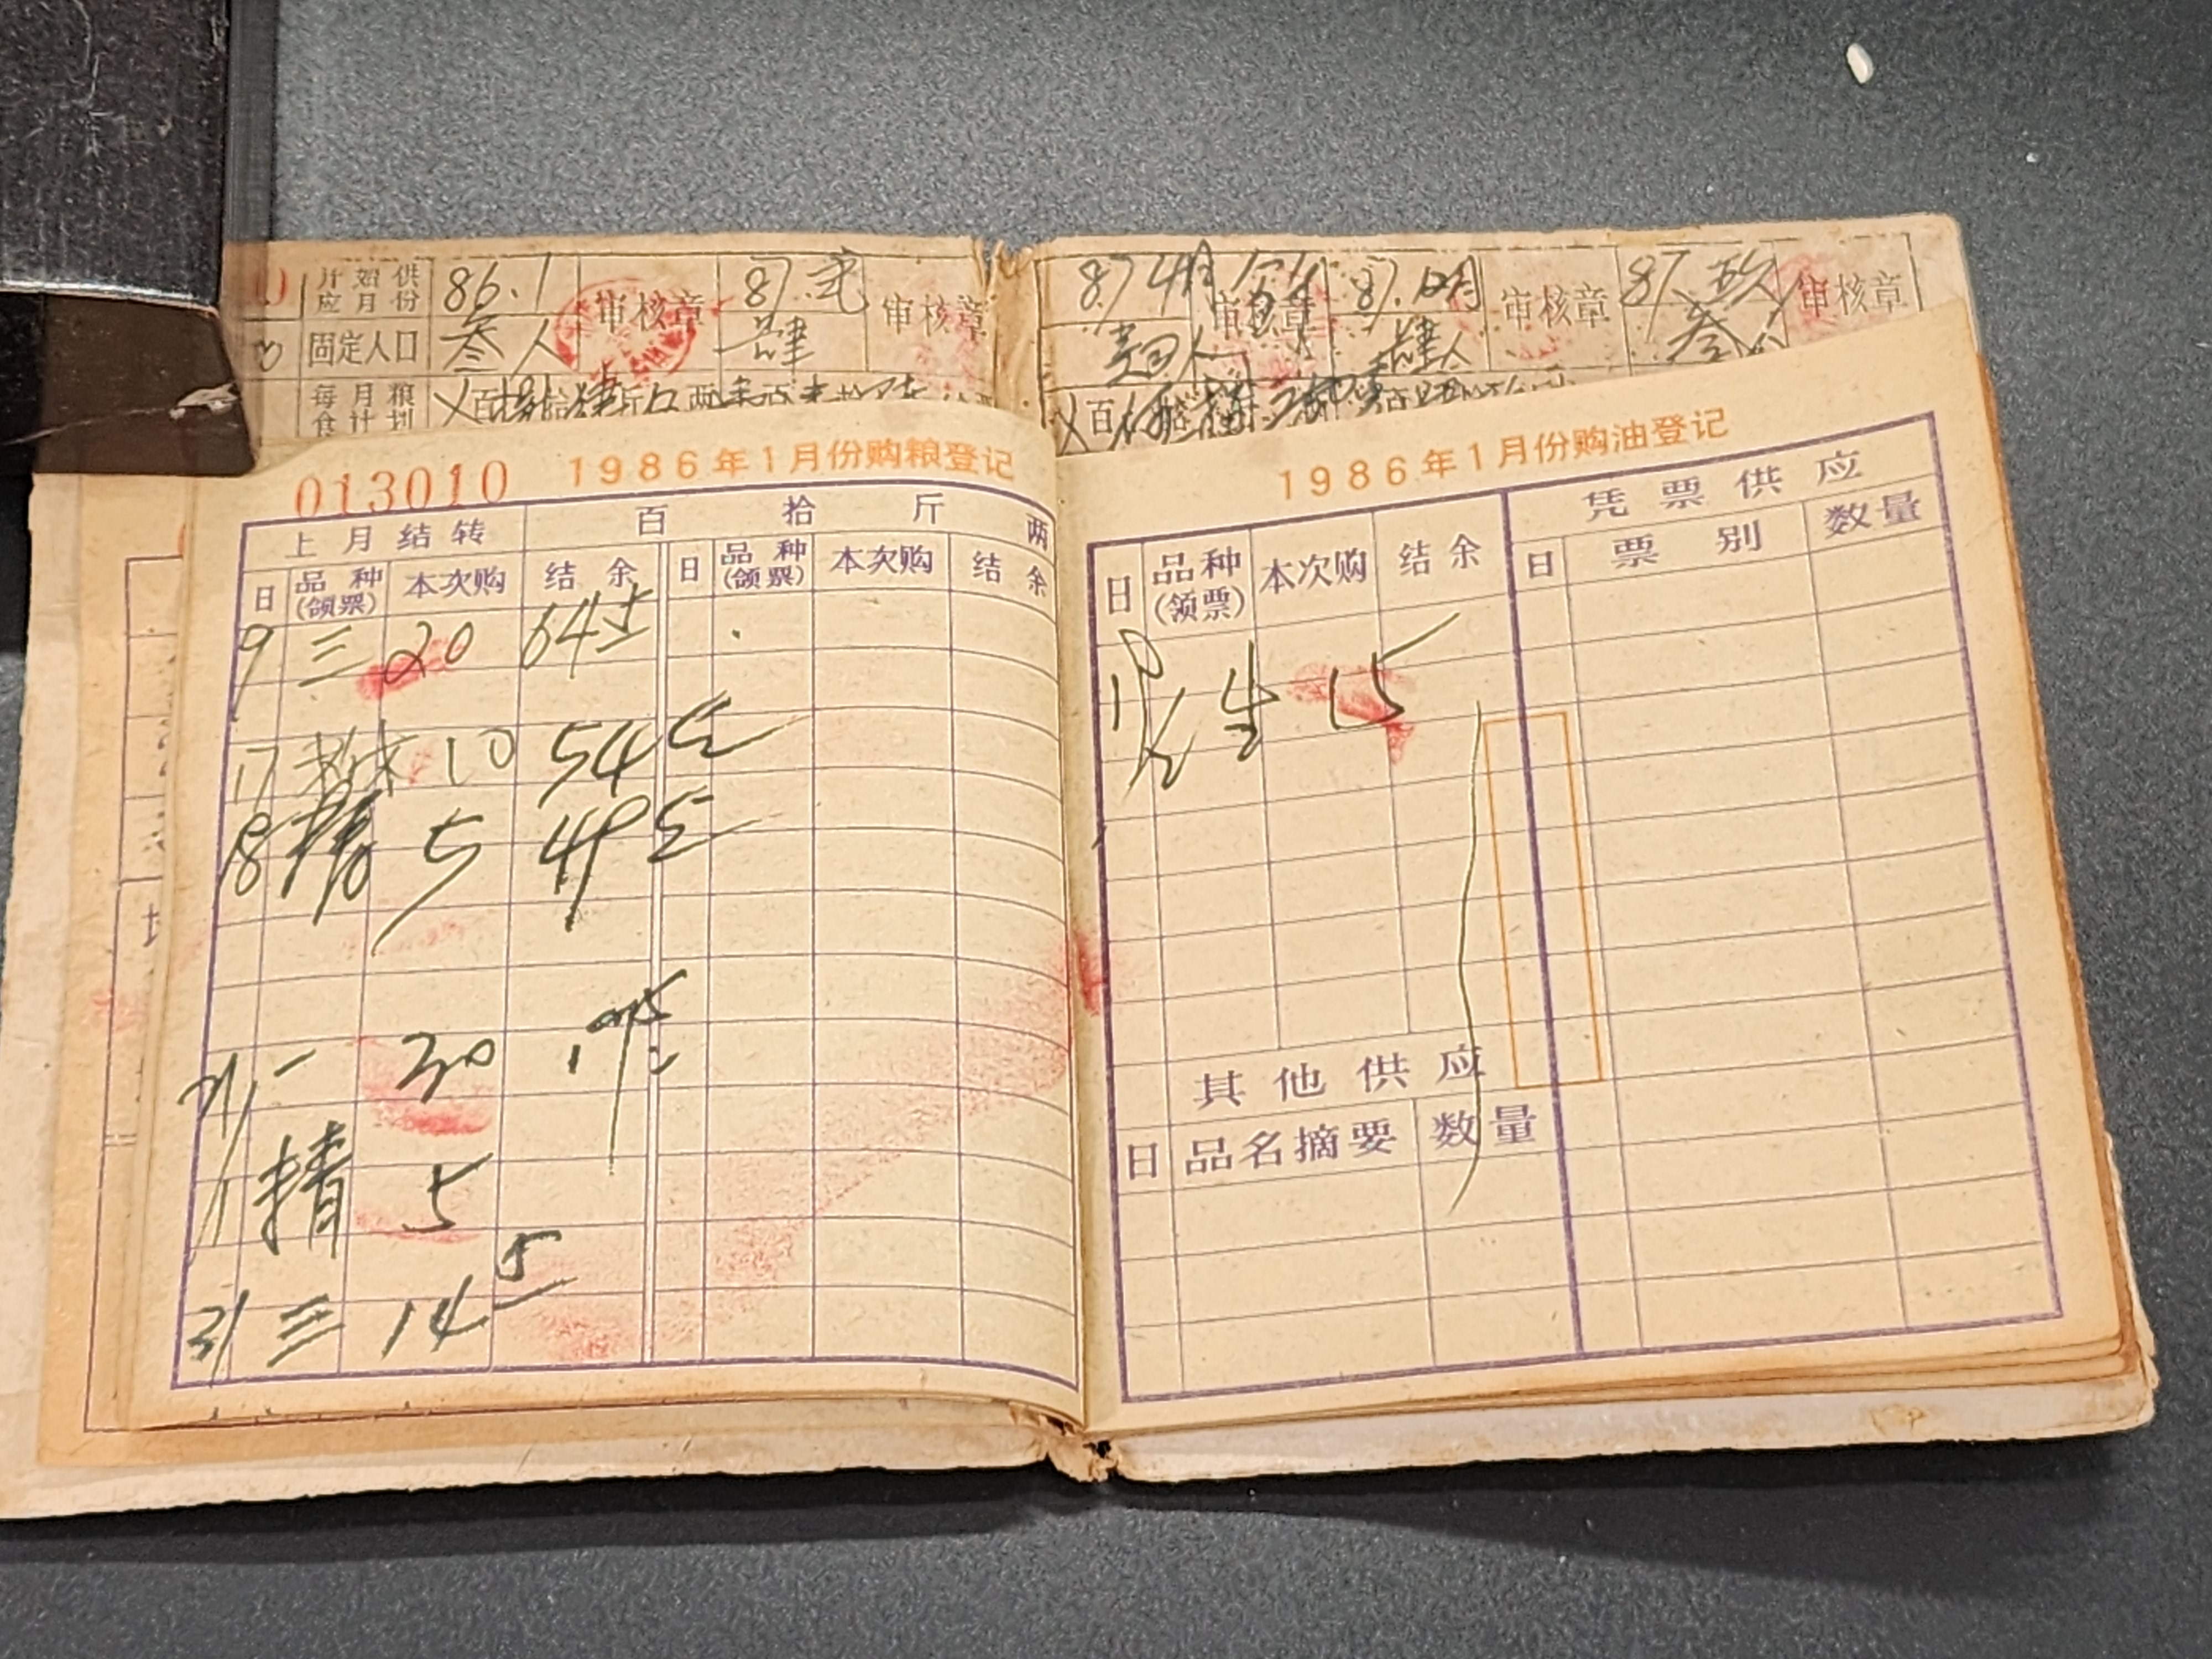 开始供应月份 86.1 审核章 87. 审核章 874月 审核章 87.12月 审核章 87. 审核章
固定人口 叁人 肆 肆人 叁
每月粮食计划 百
013010 1986年1月份购粮登记
上月结转 百 拾 斤 两
日 品种(领票) 本次购 结余 日 品种(领票) 本次购 结余
9 三 20 64五
17 10 54五
18 精 5 49五
21 一 30
精 5
31 三 14五
1986年1月份购油登记
凭票供应
日 品种(领票) 本次购 结余 日 票别 数量
18 生 15
其他供应
日 品名摘要 数量